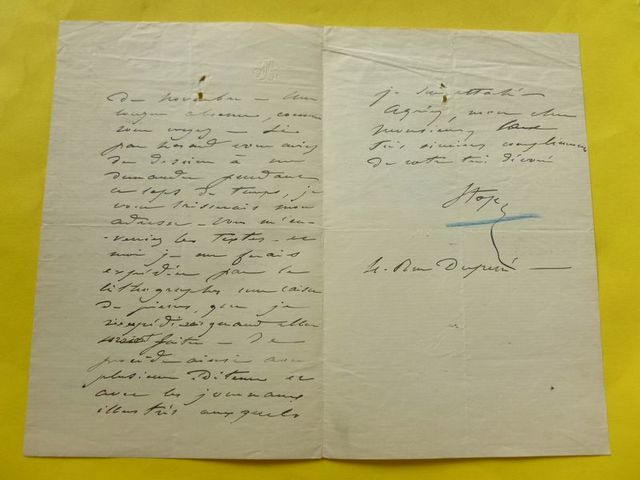 de novembre — Une
longue absence, comme
vous voyez — Si
par hasard vous aviez
des dessins à me
demander pendant
ce laps de temps, je
vous laisserais mon
adresse — Vous m'en-
verriez les textes — et
moi je me ferais
expédier par le
lithographe une caisse
de pierres, que je
réexpédierais quand elles
seraient faites — Je
procède ainsi avec
plusieurs Editeurs et
avec les journaux
illustrés auxquels
je suis attaché
Agréez, mon cher
Monsieur, les
très sincères compliments
de votre tout dévoué
Stop
Rue Duperré —